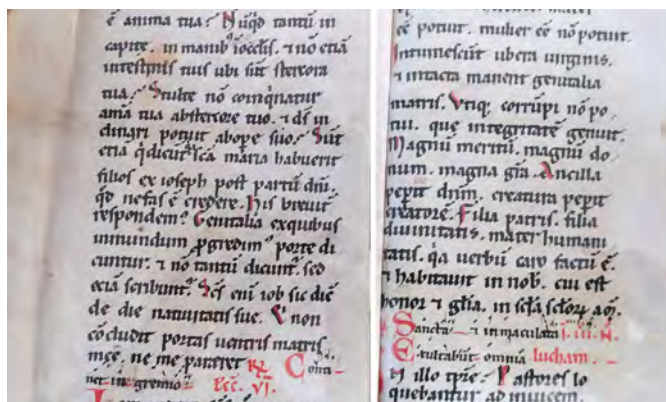 ē anima tua? Nūqd tantū in
capite. in manib⁹ ⁊ occlis. ⁊ nō etiā
intestinis tuis ubi sūt stercora
tua? Stulte nō coinq̇natur
amā tua abstercore tuo. ⁊ dS in
dinari potuit abope suo? Sūt
etiā q̇dicūt sc̄a maria habuerit
filios ex ioseph post partū dnī.
qd nefas ē credere. His breuit
respondem? Genitalia exquibus
immundum ꝓgredim⁹ porte di
cuntur. ⁊ nō tantū dicunt. sed
eciā scribunt. Sc̄s enī iob sic diē
de die natiuitatis sue. Ur non
cōcludit portas uentris matris
meę. ne me pareret R̄ Conti
net in gremio Lēc. VI.
cē potuit. mulier cē nō potuit.
Intumescūt ubera uirginis.
⁊ intacta manent genitalia
matris. Utiq̇ corrūpi nō po
tui. que integritatē genuit.
Magnū meritū. magnū do
num. magna gr̄a. Ancilla
pepit dnm. creatura pepit
creatorē. Filia patris. filia
diuinitatis. mater humani
tatis. q̇a uerbū caro factū ē.
⁊ habitauit in nob. cui est
honor ⁊ gl̄ia. in scl̄a sclōꝝ am̄.
Sancta ⁊ inmaculata i. iii. N.
Exultabūt omnia lucham.
N illo tp̄re. Pastores lo
quebantur ad inuicem.